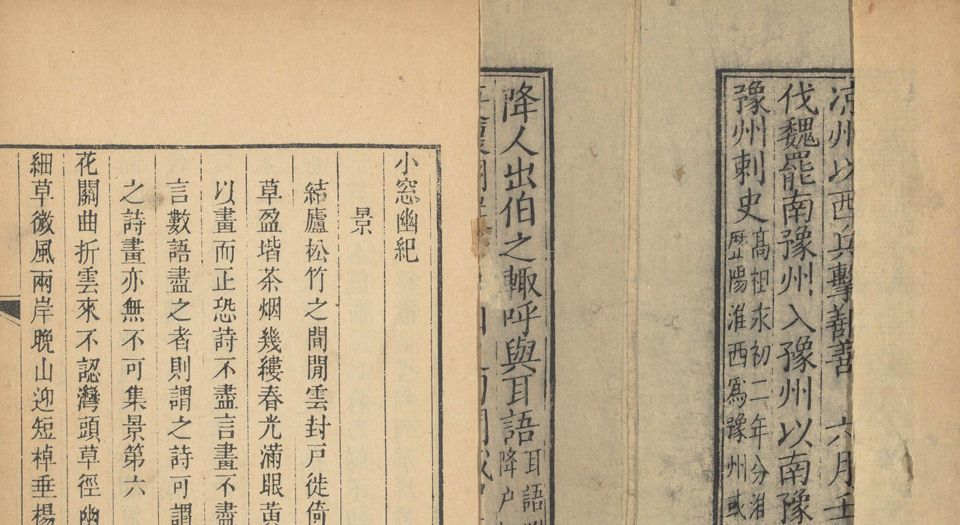 凉州以西兵擊鄯善 六月
伐魏罷南豫州入豫州以南豫
豫州刺史
髙祖永初二年分淮
歷陽淮西爲豫州或
降人出伯之輙呼與耳語
耳語
降
小窓幽紀
景
結廬松竹之間閒雲封戸徙倚
草盈堦茶烟幾縷春光滿眼黄
以畫而正恐詩不盡言畫不盡
言數語盡之者則謂之詩可謂
之詩畫亦無不可集景第六
花關曲折雲來不認灣頭草徑幽
細草微風兩岸晚山迎短棹垂楊